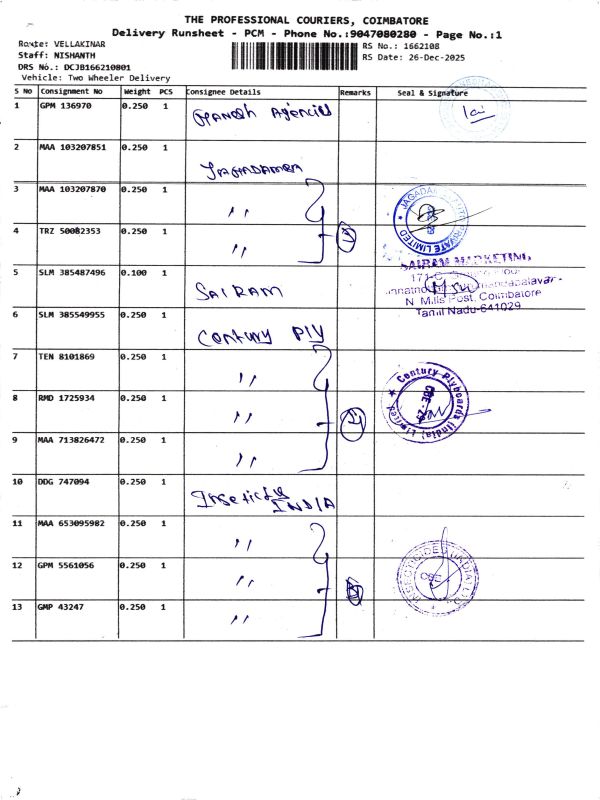 THE PROFESSIONAL COURIERS, COIMBATORE
Delivery Runsheet - PCM - Phone No.:9047080280 - Page No.:1
Route: VELLAKINAR
Staff: NISHANTH
DRS No.: DCJB166210801
Vehicle: Two Wheeler Delivery
RS No.: 1662108
RS Date: 26-Dec-2025
S No Consignment No Weight PCS Consignee Details Remarks Seal & Signature
1 GPM 136970 0.250 1 Ganesh Agencies
2 MAA 103207851 0.250 1 JAGADAMBA
3 MAA 103207870 0.250 1 〃
4 TRZ 50082353 0.250 1 〃
JAGADAMBA PRIVATE LIMITED
5 SLM 385487496 0.100 1 SAIRAM
SAIRAM MARKETING
171-C,
N. Mills Post, Coimbatore
Tamil Nadu-641029
6 SLM 385549955 0.250 1 Century Ply
7 TEN 8101869 0.250 1 〃
8 RMD 1725934 0.250 1 〃
9 MAA 713826472 0.250 1 〃
Century Plyboards (India) Limited
CBE-29
10 DDG 747094 0.250 1 INDIA
11 MAA 653095982 0.250 1 〃
12 GPM 5561056 0.250 1 〃
13 GMP 43247 0.250 1 〃
INSECTICIDES (INDIA) LTD
CBE